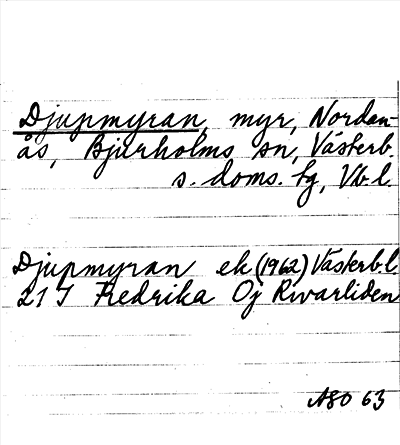 Djupmyran, myr, Nordan-
ås, Bjurholms sn, Västerb.
s. doms. tg, Vb.l.
Djupmyran ek (1962) Västerb.l
21 J Fredrika Oj Rivarliden
ASO 63